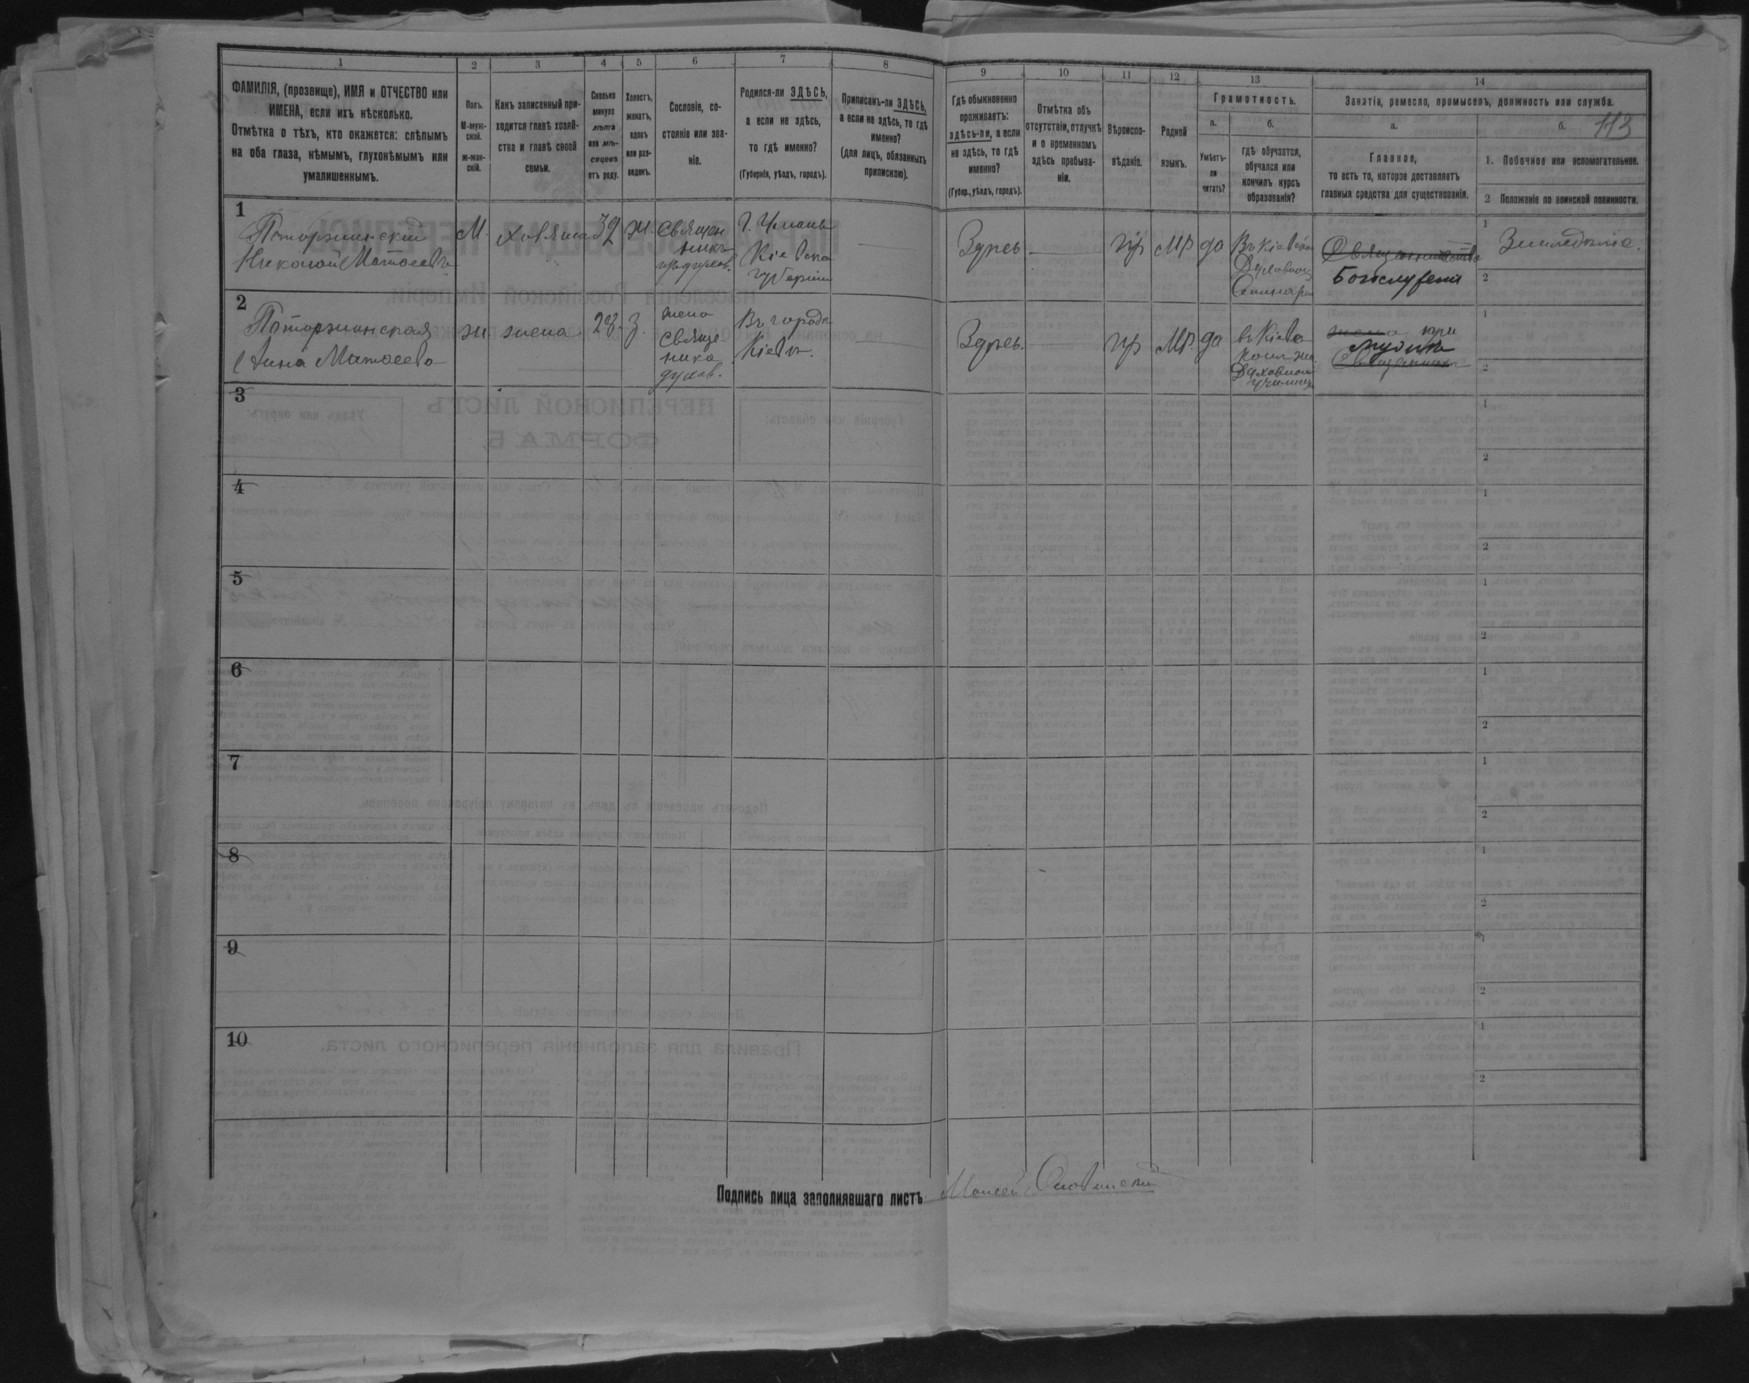 1 2 3 4 5 6 7 8 9 10 11 12 13 14
113
ФАМИЛІЯ, (прозвище), ИМЯ и ОТЧЕСТВО или
ИМЕНА, если ихъ нѣсколько.
Отмѣтка о тѣхъ, кто окажется: слѣпымъ
на оба глаза, нѣмымъ, глухонѣмымъ или
умалишеннымъ.
Полъ.
М-муж-
ской.
ж-жен-
скій.
Какъ записанный при-
ходится главѣ хозяй-
ства и главѣ своей
семьи.
Сколько
минуло
лѣтъ
или мѣ-
сяцевъ
отъ роду.
Холостъ,
женатъ,
вдовъ
или раз-
веденъ.
Сословіе, со-
стояніе или зва-
ніе.
Родился-ли ЗДѢСЬ,
а если не здѣсь,
то гдѣ именно?
(Губернія, уѣздъ, городъ).
Приписанъ-ли ЗДѢСЬ,
а если не здѣсь, то гдѣ
именно?
(для лицъ, обязанныхъ
припискою).
Гдѣ обыкновенно
проживаетъ:
здѣсь-ли, а если
не здѣсь, то гдѣ
именно?
(Губер., уѣздъ, городъ).
Отмѣтка объ
отсутствіи, отлучкѣ
и о временномъ
здѣсь пребыва-
ніи.
Вѣроиспо-
вѣданіе.
Родной
языкъ.
Грамотность.
а.
Умѣетъ-
ли
читать?
б.
гдѣ обучается,
обучался или
кончилъ курсъ
образованія?
Занятіе, ремесло, промыселъ, должность или служба.
а.
Главное,
то есть то, которое доставляетъ
главныя средства для существованія.
б.
1. Побочное или вспомогательное.
2 Положеніе по воинской повинности.
1
Поторжинскій
Николай Матвеевъ
М.
хозяина
32
ж.
Священ
никъ
Г. Умань
Кіевска
губерніи
Здѣсь
пр
мр
да
Въ Кіевской
Духовной
Семинаріи
Богослуженія
1
Земледѣліе.
2
2
Поторжинская
Анна Матвеева
ж
жена
28
з.
жена
Свяще
ника
духов.
Въ городѣ
Кіевѣ.
Здѣсь.
пр
мр.
да
въ Кіевѣ
Духовном
училищѣ
при
мужѣ
1
2
3
1
2
4
1
2
5
1
2
6
1
2
7
1
2
8
1
2
9
1
2
10
1
2
Подпись лица заполнявшаго листъ Моисей